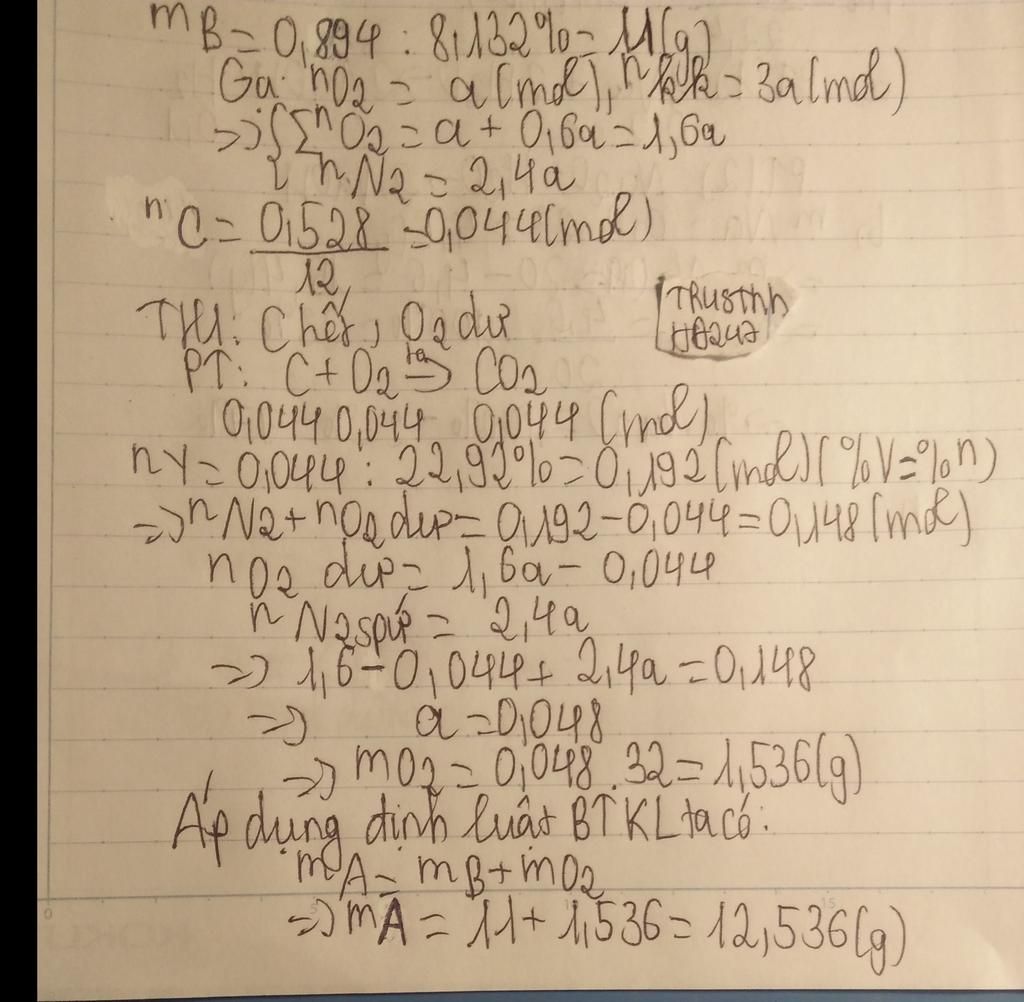 mB = 0,894 : 8,132% = 11(g)
Gọi nO2 = a(mol), nkk = 3a(mol)
=> { ΣnO2 = a + 0,6a = 1,6a
{ nN2 = 2,4a
nC = 0,528 = 0,044(mol)
12
TH1: C hết, O2 dư
TRUSTnh
HĐ247
PT: C + O2 to→ CO2
0,044 0,044 0,044 (mol)
nY = 0,044 : 22,92% = 0,192(mol)(%V=%n)
=> nN2 + nO2 dư = 0,192 - 0,044 = 0,148(mol)
nO2 dư = 1,6a - 0,044
nN2spứ = 2,4a
=> 1,6 - 0,044 + 2,4a = 0,148
=> a = 0,048
=> mO2 = 0,048 . 32 = 1,536(g)
Áp dụng định luật BTKL ta có:
mA = mB + mO2
=> mA = 11 + 1,536 = 12,536(g)